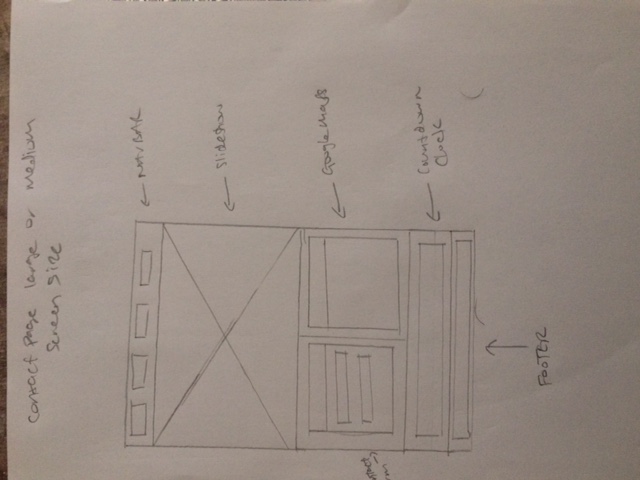 Contact Page large or medium
Screen Size
NAVBAR
Slideshow
Google maps
Countdown
Clock
FOOTER